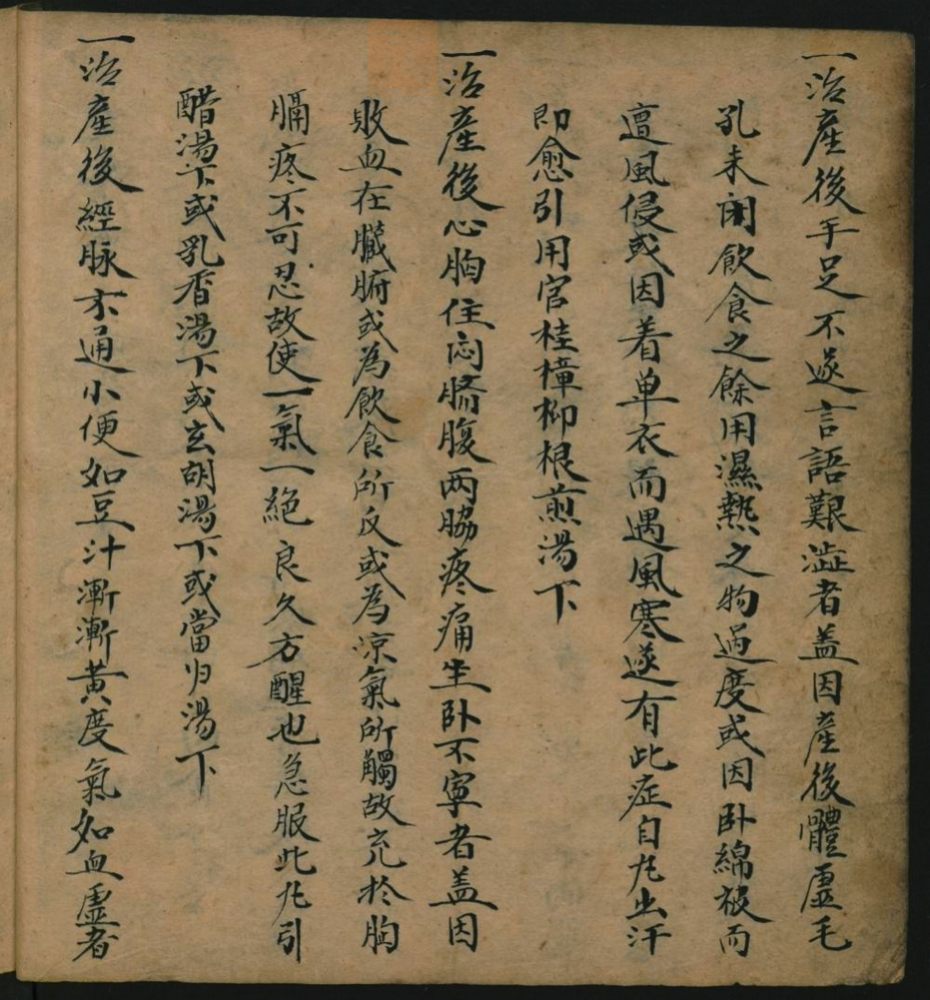 一治產後手足不遂言語艱澁者盖因產後體虛毛
孔未闭飲食之餘用濕熱之物過度或因卧綿被而
遭風侵或因着单衣而遇風寒遂有此症自先出汗
即愈引用官桂樟柳根煎湯下
一治產後心胸住闷臍腹两脇疼痛坐卧不寧者盖因
敗血在臟腑或為飲食所反或為凉氣所觸故充於胸
膈疼不可忍故使一氣一絕良久方醒也急服此丸引
醋湯下或乳香湯下或玄胡湯下或當归湯下
一治產後經脉不通小便如豆汁漸漸黃度氣如血虛者